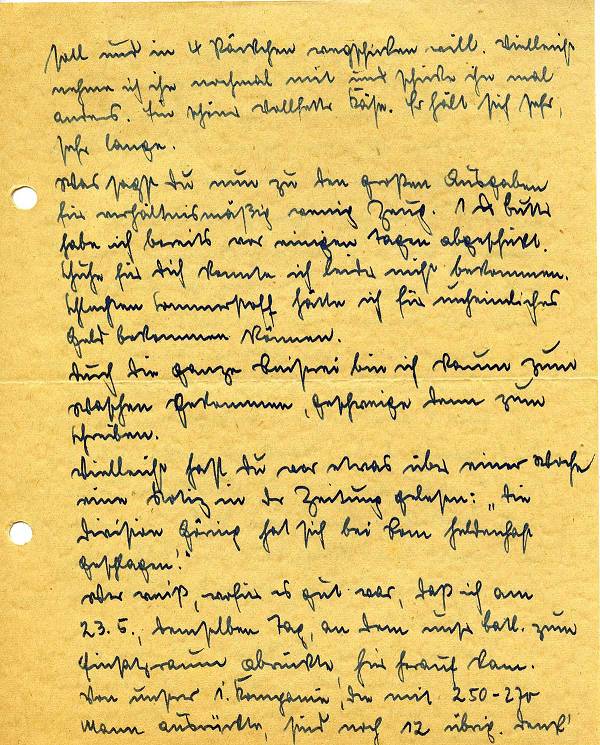 soll und in 4 Päckchen wegschicken will. Vielleicht
nehme ich ihn nochmal mit und schicke ihn mal
anders. Ein schöner vollfetter Käse. Er hält sich sehr,
sehr lange.
Was sagst Du nun zu den großen Ausgaben
für verhältnismäßig wenig Zeug. 1 Ds Butter
habe ich bereits vor einigen Tagen abgeschickt.
Schuhe für Dich konnte ich leider nicht bekommen.
Schlechten Sommerstoff hätte ich für unheimliches
Geld bekommen können.
Durch die ganze Reiserei bin ich kaum zum
Waschen gekommen, geschweige denn zum
Schreiben.
Vielleicht hast Du vor etwas über einer Woche
eine Notiz in der Zeitung gelesen: „Die
Division Göring hat sich bei Rom heldenhaft
geschlagen."
Wer weiß, wofür es gut war, daß ich am
23.5., demselben Tag, an dem unser Batl. zum
Einsatzraum abrückte, hier herauf kam.
Von unserer 1. Kompanie, die mit 250-270
Mann ausrückte, sind noch 12 übrig. Denk'